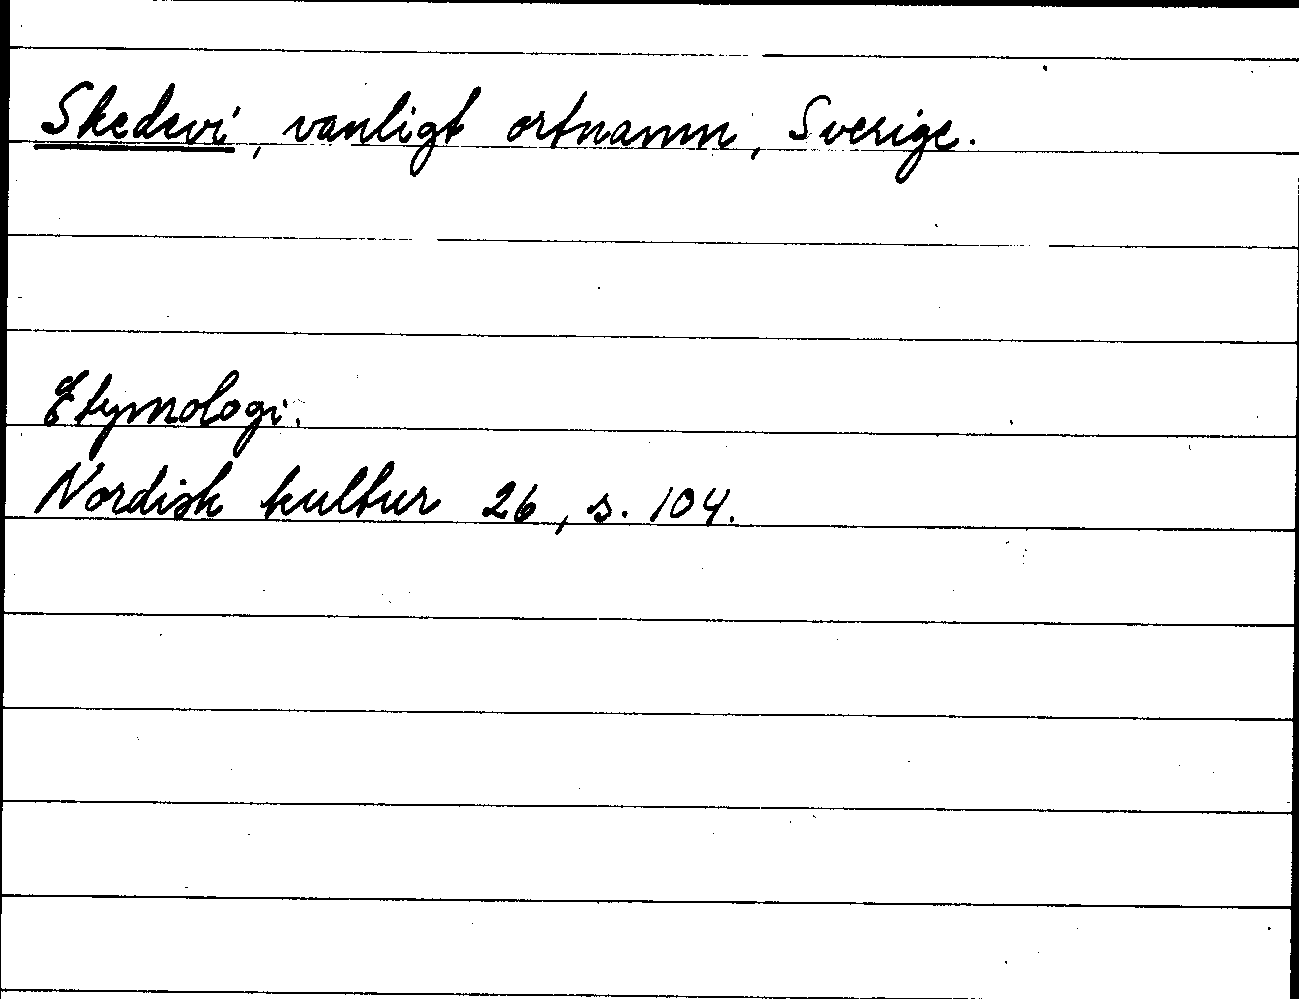 Skedevi, vanligt ortnamn, Sverige.
Etymologi.
Nordisk kultur 26, s. 104.